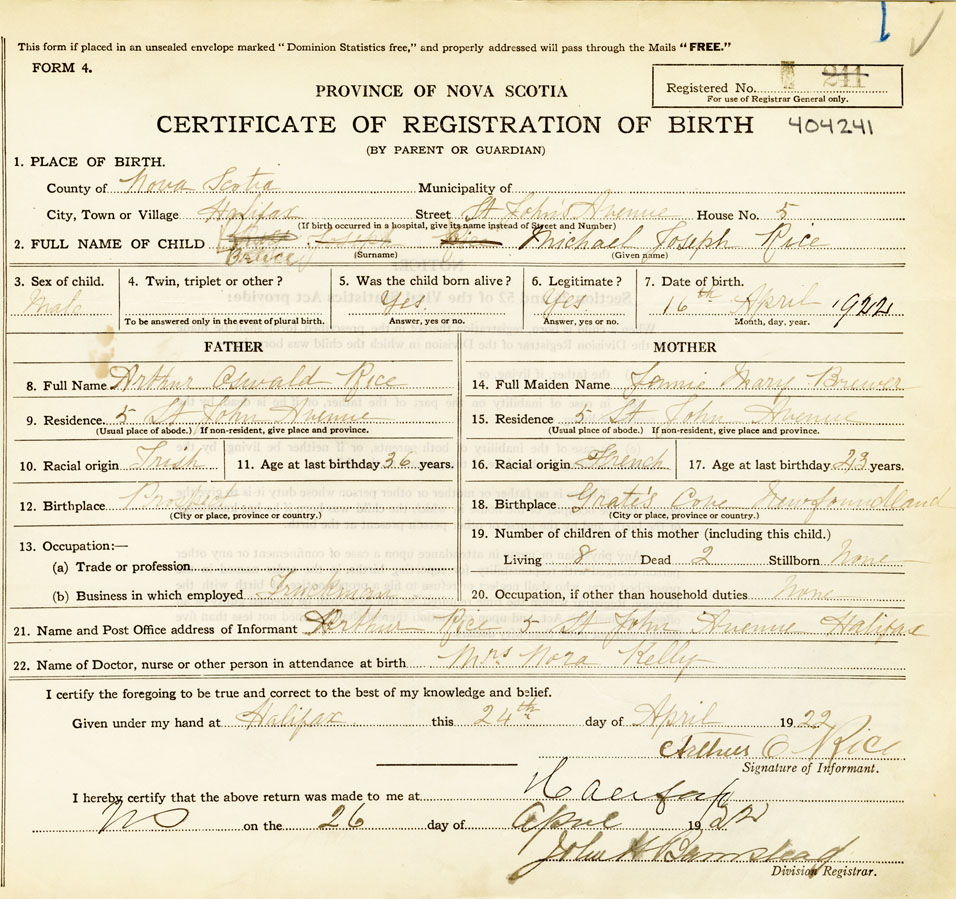 This form if placed in an unsealed envelope marked "Dominion Statistics free," and properly addressed will pass through the Mails "FREE."
FORM 4.
Registered No. 241
For use of Registrar General only.
PROVINCE OF NOVA SCOTIA
CERTIFICATE OF REGISTRATION OF BIRTH 404241
(BY PARENT OR GUARDIAN)
1. PLACE OF BIRTH.
County of Nova Scotia Municipality of
City, Town or Village Halifax Street St John's Avenue House No. 5
(If birth occurred in a hospital, give its name instead of Street and Number)
2. FULL NAME OF CHILD Joseph Rice Michael Joseph Rice
(Surname) (Given name)
3. Sex of child. 4. Twin, triplet or other? 5. Was the child born alive? 6. Legitimate? 7. Date of birth.
Male Yes. Yes. 16th April 1922
To be answered only in the event of plural birth. Answer, yes or no. Answer, yes or no. Month, day, year.
FATHER MOTHER
8. Full Name Arthur Oswald Rice 14. Full Maiden Name Mary Brewer
9. Residence. 5 St John Avenue 15. Residence 5 St John Avenue
(Usual place of abode.) If non-resident, give place and province. (Usual place of abode.) If non-resident, give place and province.
10. Racial origin Irish 11. Age at last birthday 36 years. 16. Racial origin French 17. Age at last birthday years.
12. Birthplace Prospect 18. Birthplace Grate's Cove Newfoundland
(City or place, province or country.) (City or place, province or country.)
13. Occupation:— 19. Number of children of this mother (including this child.)
(a) Trade or profession Living 8 Dead 2 Stillborn None
(b) Business in which employed Truckman 20. Occupation, if other than household duties None
21. Name and Post Office address of Informant Arthur Rice 5 St John Avenue Halifax
22. Name of Doctor, nurse or other person in attendance at birth Mrs Nora Kelly
I certify the foregoing to be true and correct to the best of my knowledge and belief.
Given under my hand at Halifax this 24th day of April 1922
Arthur O Rice
Signature of Informant.
I hereby certify that the above return was made to me at Halifax
NS on the 26 day of April 1922
John H Barnstead
Division Registrar.